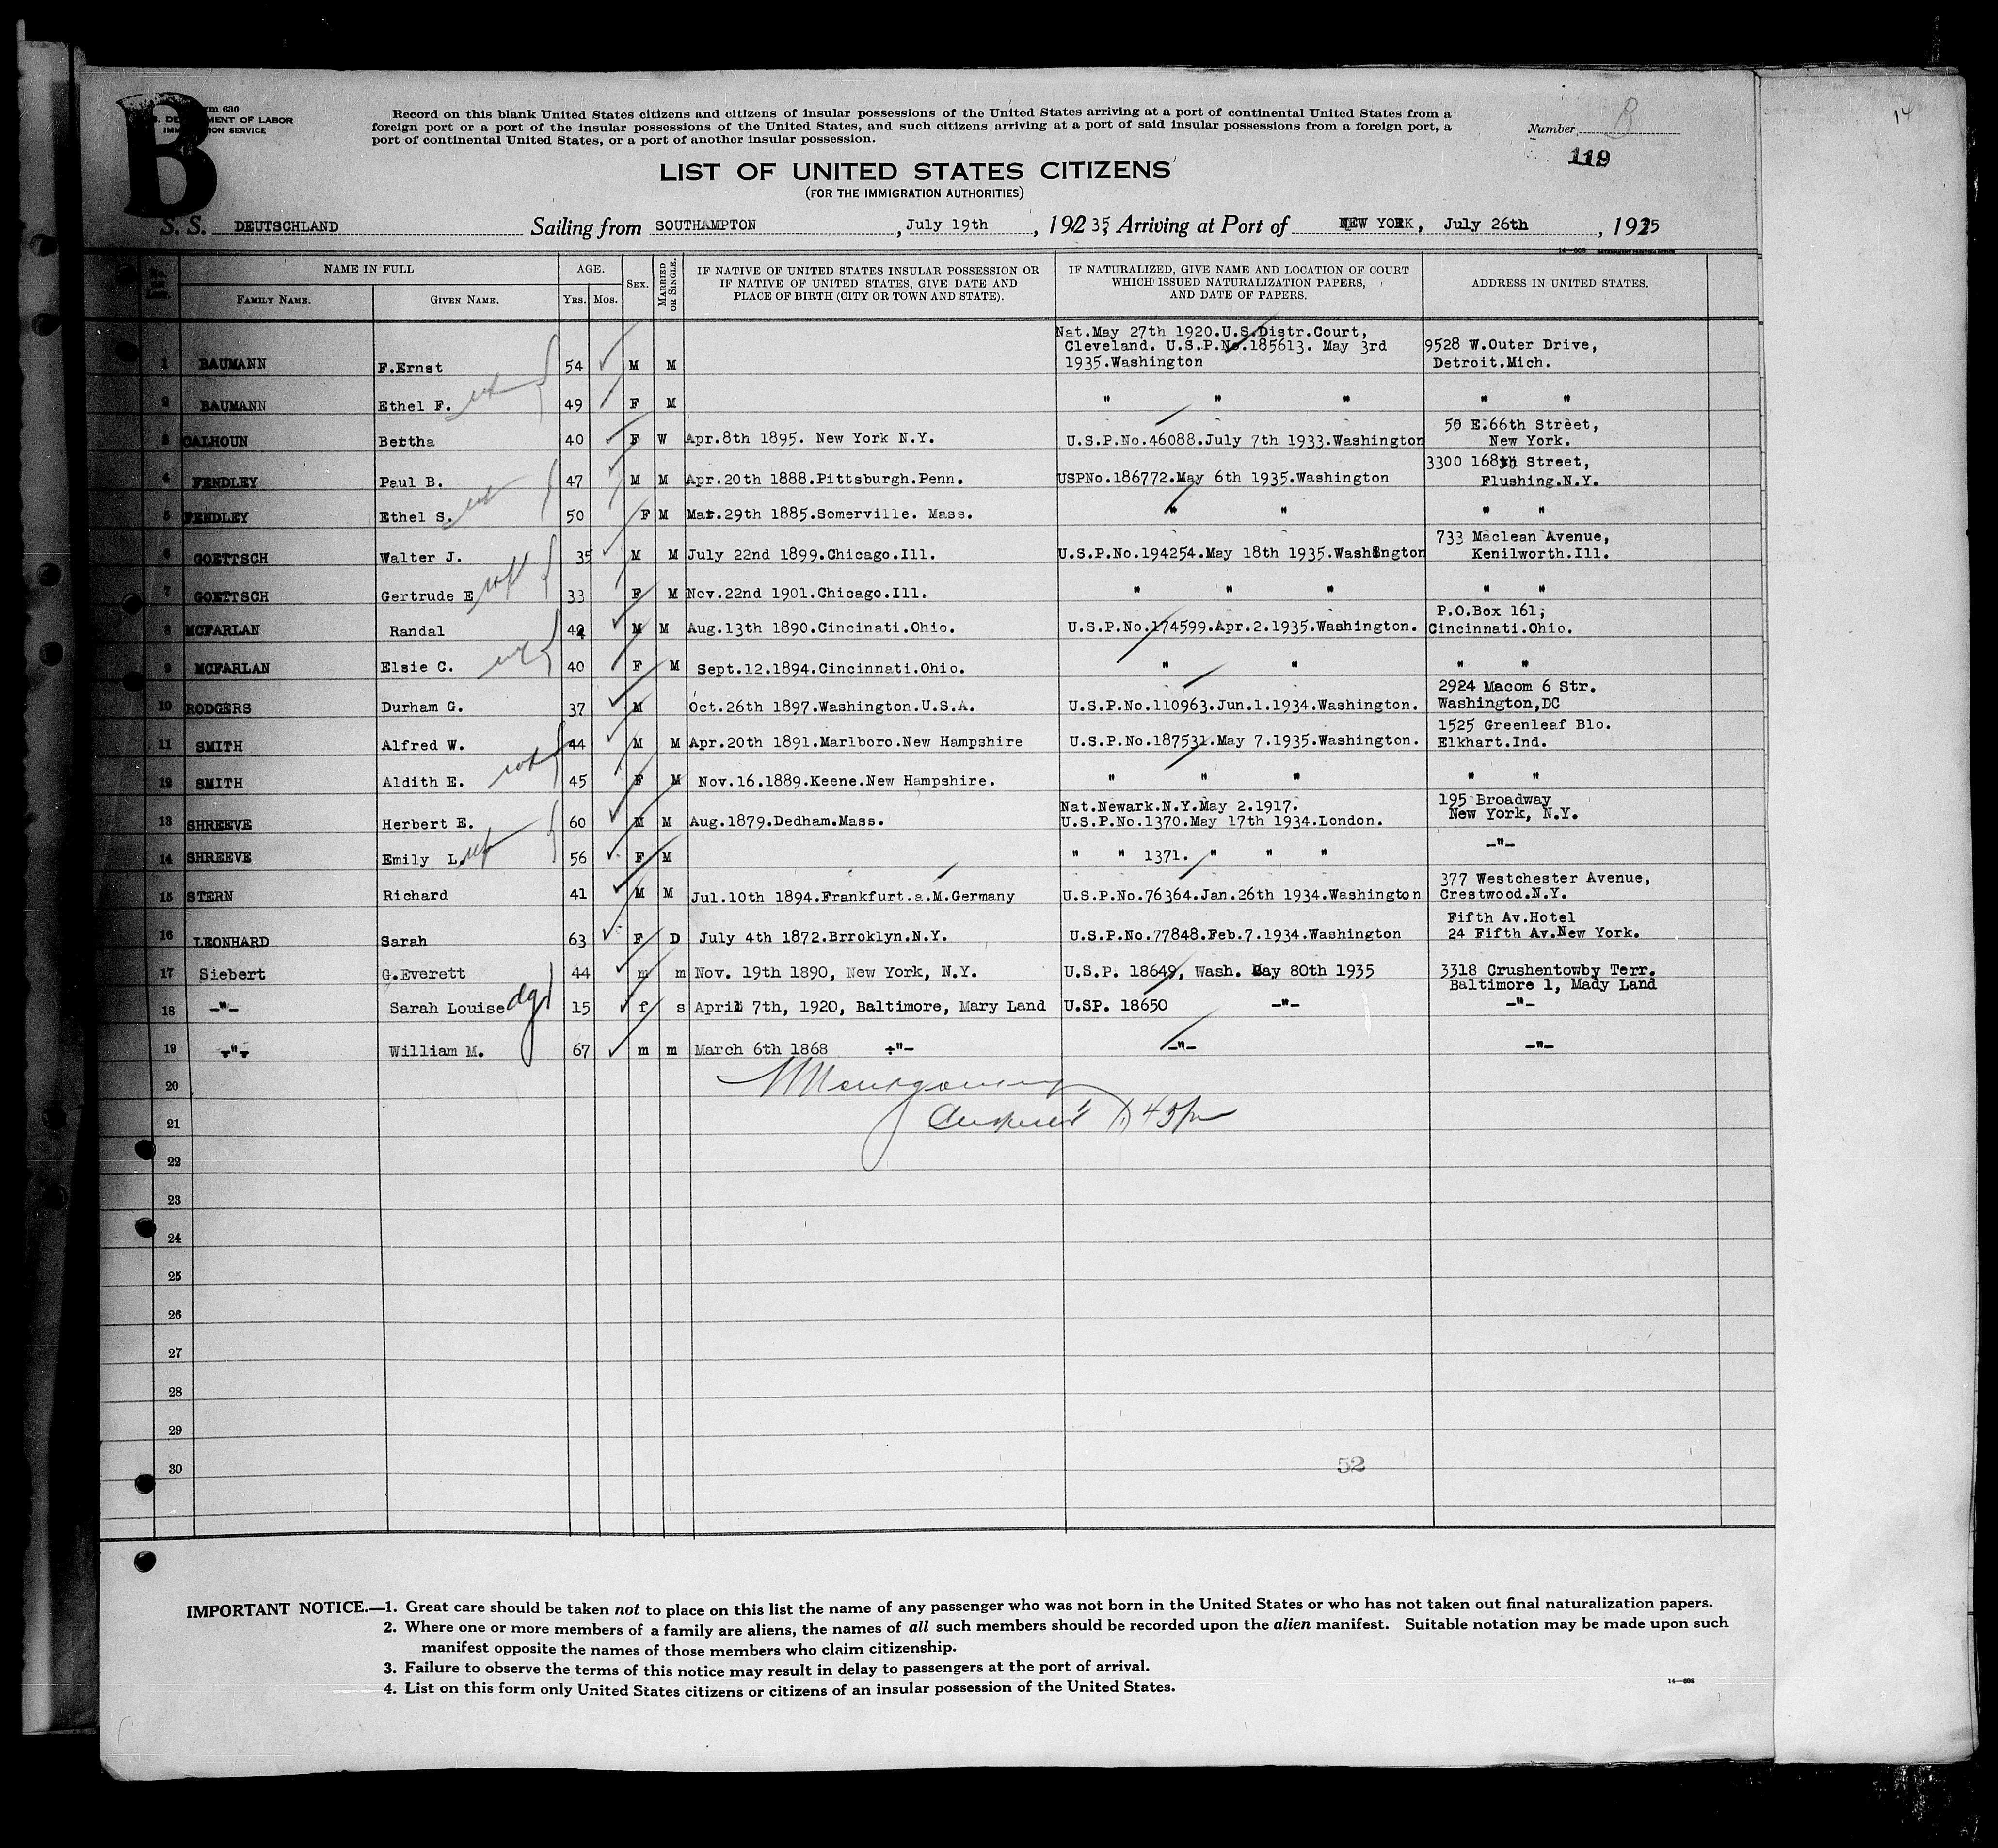 B
14
Form 630
U.S. DEPARTMENT OF LABOR
IMMIGRATION SERVICE
Record on this blank United States citizens and citizens of insular possessions of the United States arriving at a port of continental United States from a
foreign port or a port of the insular possessions of the United States, and such citizens arriving at a port of said insular possessions from a foreign port, a
port of continental United States, or a port of another insular possession.
Number B
119
LIST OF UNITED STATES CITIZENS
(FOR THE IMMIGRATION AUTHORITIES)
S. S. DEUTSCHLAND Sailing from SOUTHAMPTON, July 19th, 192 35, Arriving at Port of NEW YORK, July 26th, 1935
14—608 GOVERNMENT PRINTING OFFICE
No. on List. NAME IN FULL AGE. SEX. MARRIED OR SINGLE. IF NATIVE OF UNITED STATES INSULAR POSSESSION OR IF NATIVE OF UNITED STATES, GIVE DATE AND PLACE OF BIRTH (CITY OR TOWN AND STATE). IF NATURALIZED, GIVE NAME AND LOCATION OF COURT WHICH ISSUED NATURALIZATION PAPERS, AND DATE OF PAPERS. ADDRESS IN UNITED STATES.
FAMILY NAME. GIVEN NAME. YRS. MOS.
Nat.May 27th 1920.U.S.Distr.Court,
Cleveland. U.S.P.No.185613. May 3rd 9528 W.Outer Drive,
1 BAUMANN F.Ernst 54 M M 1935.Washington Detroit.Mich.
2 BAUMANN Ethel F. wf 49 F M " " " " "
50 E.66th Street,
3 CALHOUN Bertha 40 F W Apr.8th 1895. New York N.Y. U.S.P.No.46088.July 7th 1933.Washington New York.
3300 168th Street,
4 FENDLEY Paul B. 47 M M Apr.20th 1888.Pittsburgh.Penn. USPNo.186772.May 6th 1935.Washington Flushing.N.Y.
5 FENDLEY Ethel S. wf 50 F M Mar.29th 1885.Somerville. Mass. " " " "
733 Maclean Avenue,
6 GOETTSCH Walter J. 35 M M July 22nd 1899.Chicago.Ill. U.S.P.No.194254.May 18th 1935.Washington Kenilworth.Ill.
7 GOETTSCH Gertrude E wf 33 F M Nov.22nd 1901.Chicago.Ill. " " " " "
P.O.Box 161,
8 MCFARLAN Randal 44 M M Aug.13th 1890.Cincinati.Ohio. U.S.P.No.174599.Apr.2.1935.Washington. Cincinnati.Ohio.
9 MCFARLAN Elsie C. wf 40 F M Sept.12.1894.Cincinnati.Ohio. " " " "
2924 Macom 6 Str.
10 RODGERS Durham G. 37 M Oct.26th 1897.Washington.U.S.A. U.S.P.No.110963.Jun.1.1934.Washington. Washington,DC
1525 Greenleaf Blo.
11 SMITH Alfred W. 44 M M Apr.20th 1891.Marlboro.New Hampshire U.S.P.No.187531.May 7.1935.Washington. Elkhart.Ind.
12 SMITH Aldith E. wf 45 F M Nov.16.1889.Keene.New Hampshire. " " " " "
Nat.Newark.N.Y.May 2.1917. 195 Broadway
13 SHREEVE Herbert E. 60 M M Aug.1879.Dedham.Mass. U.S.P.No.1370.May 17th 1934.London. New York, N.Y.
14 SHREEVE Emily L. wf 56 F M " " 1371. " " " -"-
377 Westchester Avenue,
15 STERN Richard 41 M M Jul.10th 1894.Frankfurt.a.M.Germany U.S.P.No.76364.Jan.26th 1934.Washington Crestwood.N.Y.
Fifth Av.Hotel
16 LEONHARD Sarah 63 F D July 4th 1872.Brroklyn.N.Y. U.S.P.No.77848.Feb.7.1934.Washington 24 Fifth Av.New York.
17 Siebert G.Everett 44 m m Nov. 19th 1890, New York, N.Y. U.S.P. 18649, Wash. May 80th 1935 3318 Crushentowby Terr.
Baltimore 1, Mady Land
18 -"- Sarah Louise dgt 15 f s April 7th, 1920, Baltimore, Mary Land U.SP. 18650 -"- -"-
19 -"- William M. 67 m m March 6th 1868 -"- -"- -"-
20
21
22
23
24
25
26
27
28
29
30
52
IMPORTANT NOTICE.—1. Great care should be taken not to place on this list the name of any passenger who was not born in the United States or who has not taken out final naturalization papers.
2. Where one or more members of a family are aliens, the names of all such members should be recorded upon the alien manifest. Suitable notation may be made upon such
manifest opposite the names of those members who claim citizenship.
3. Failure to observe the terms of this notice may result in delay to passengers at the port of arrival.
4. List on this form only United States citizens or citizens of an insular possession of the United States.
14—608